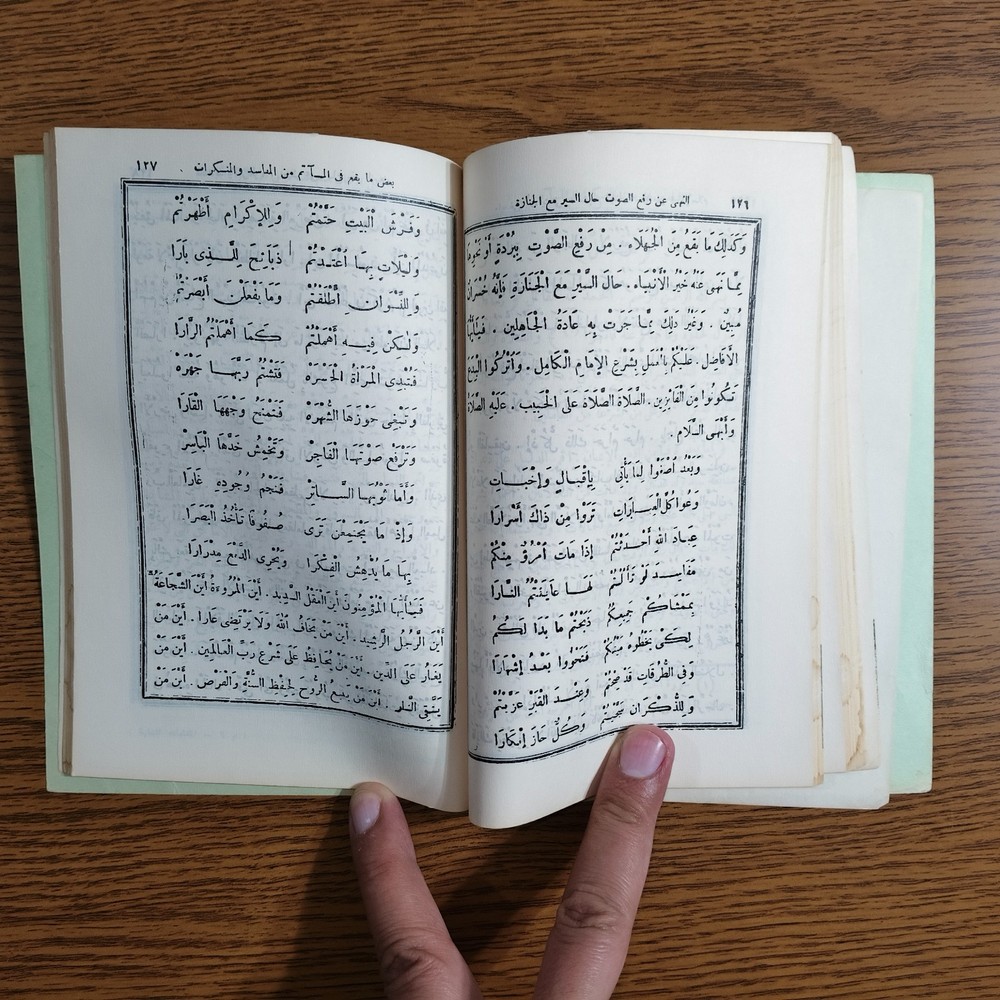 ١٢٦ النهى عن رفع الصوت حال السير مع الجنازة
وَكَذٰلِكَ مَا يَقَعُ مِنَ الْجُهَلَاءِ . مِنْ رَفْعِ الصَّوْتِ بِبُرْدَةٍ أَوْ نَحْوِهَا
مِمَّا نَهَى عَنْهُ خَيْرُ الْأَنْبِيَاءِ . حَالَ السَّيْرِ مَعَ الْجَنَازَةِ فَإِنَّهُ خُسْرَانٌ
مُبِينٌ . وَغَيْرُ ذٰلِكَ مِمَّا جَرَتْ بِهِ عَادَةُ الْجَاهِلِينَ . فَيَأَيُّهَا
الْأَفَاضِلُ . عَلَيْكُمْ بِالْعَمَلِ بِشَرْعِ الْإِمَامِ الْكَامِلِ . وَاتْرُكُوا الْبِدَعَ
تَكُونُوا مِنَ الْفَائِزِينَ . الصَّلَاةَ الصَّلَاةَ عَلَى الْحَبِيبِ . عَلَيْهِ الصَّلَاةُ
وَأَبْهَى السَّلَامِ .
وَبَعْدُ اُصْغُوا لِمَا يَأْتِى بِإِقْبَالٍ وَإِخْبَاتِ
وَعُوا كُلَّ الْعِبَارَاتِ تَرَوْا مِنْ ذَاكَ أَسْرَارَا
عِبَادَ اللهِ أَحْدَثْتُمْ إِذَا مَاتَ امْرُؤٌ مِنْكُمْ
مَفَاسِدَ لَوْ لَهَا عَايَنْتُمُ النَّارَا
جَمِيعُكُمْ ذَبَحْتُمْ مَا بَدَا لَكُمْ
لِكَىْ يَخْطُوهُ مَيْتُكُمْ فَتَحْوُوا بَعْدُ إِشْهَارَا
وَفِى الطُّرُقَاتِ قَدْ صِحْتُمْ وَعِنْدَ الْقَبْرِ عَزَّيْتُمْ
وَلِلذِّكْرَانِ وَكُلٌّ حَازَ إِنْكَارَا
بعض ما يقع فى المآتم من المفاسد والمنكرات ١٢٧
وَفَرْشَ الْبَيْتِ حَتَّمْتُمْ وَلِلْإِكْرَامِ أَظْهَرْتُمْ
وَلَيْلَاتٍ بِهَا اعْتَدْتُمْ ذَبَائِحَ لِلَّذِى زَارَا
وَلِلنِّسْوَانِ أَطْلَقْتُمْ وَمَا يَفْعَلْنَ أَبْصَرْتُمْ
وَلٰكِنْ فِيهِ أَهْمَلْتُمْ كَمَا أَهْمَلْتُمُ الزَّارَا
فَتُبْدِى الْمَرْأَةُ الْحَسْرَهْ فَتَشْتُمُ رَبَّهَا جَهْرَهْ
وَتَبْغِى حَوْزَهَا الشُّهْرَهْ فَتَمْنَحُ وَجْهَهَا الْقَارَا
وَتَرْفَعُ صَوْتَهَا الْفَاجِرْ وَتَخْمُشُ خَدَّهَا الْبَاسِرْ
وَأَمَّا ثَوْبُهَا السَّاتِرْ فَنَجْمُ وُجُودِهِ غَارَا
وَإِذْ مَا يَجْتَمِعْنَ تَرَى صُفُوفًا تَأْخُذُ الْبَصَرَا
بِهَا مَا يُدْهِشُ الْفِكَرَا وَيُجْرِى الدَّمْعَ مِدْرَارَا
فَيَأَيُّهَا الْمُؤْمِنُونَ أَيْنَ الْعَقْلُ السَّدِيدُ . أَيْنَ الْمُرُوءَةُ أَيْنَ الشَّجَاعَةُ
أَيْنَ الرَّجُلُ الرَّشِيدُ . أَيْنَ مَنْ يَخَافُ اللهَ وَلَا يَرْتَضِى عَارًا . أَيْنَ مَنْ
يَغَارُ عَلَى الدِّينِ . أَيْنَ مَنْ يُحَافِظُ عَلَى شَرْعِ رَبِّ الْعَالَمِينَ . أَيْنَ مَنْ
يَتَّقِى النَّارَ . أَيْنَ مَنْ يَبِيعُ الرُّوحَ لِحِفْظِ السُّنَّةِ وَالْفَرْضِ . أَيْنَ مَنْ